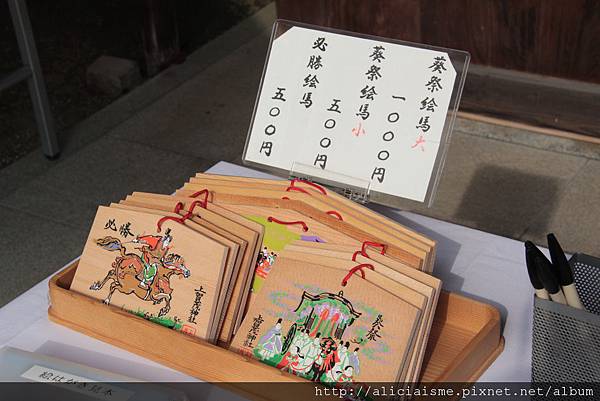 葵祭絵馬大
一〇〇〇円
葵祭絵馬小
五〇〇円
必勝絵馬
五〇〇円
必勝
上賀茂神社
葵祭
上賀茂神社
http://aliciaisme.pixnet.net/album